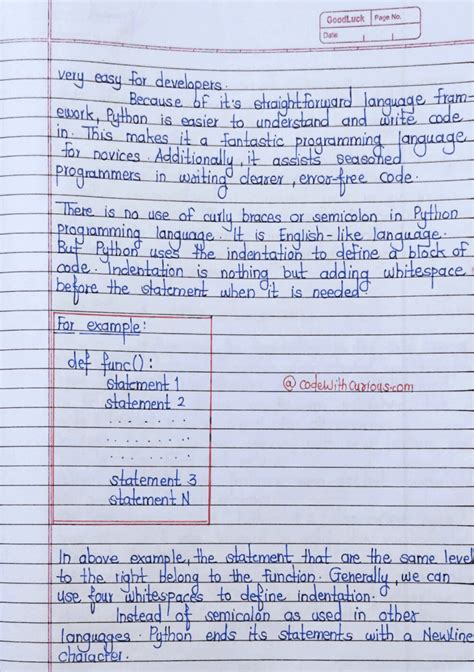 GoodLuck Page No.
Date
very easy for developers.
Because of it's straightforward language fram-
ework, Python is easier to understand and write code
in. This makes it a fantastic programming language
for novices. Additionally, it assists seasoned
programmers in writing clearer, error-free code.
There is no use of curly braces or semicolon in Python
programming language. It is English-like language.
But Python uses the indentation to define a block of
code. Indentation is nothing but adding whitespace
before the statement when it is needed.
For example:
def func():
statement 1
@codewithcurious.com
statement 2
. . . . . . .
. . . . . . .
statement 3
statement N
In above example, the statement that are the same level
to the right belong to the function. Generally, we can
use four whitespaces to define indentation.
Instead of semicolon as used in other
languages. Python ends its statements with a Newline
character.